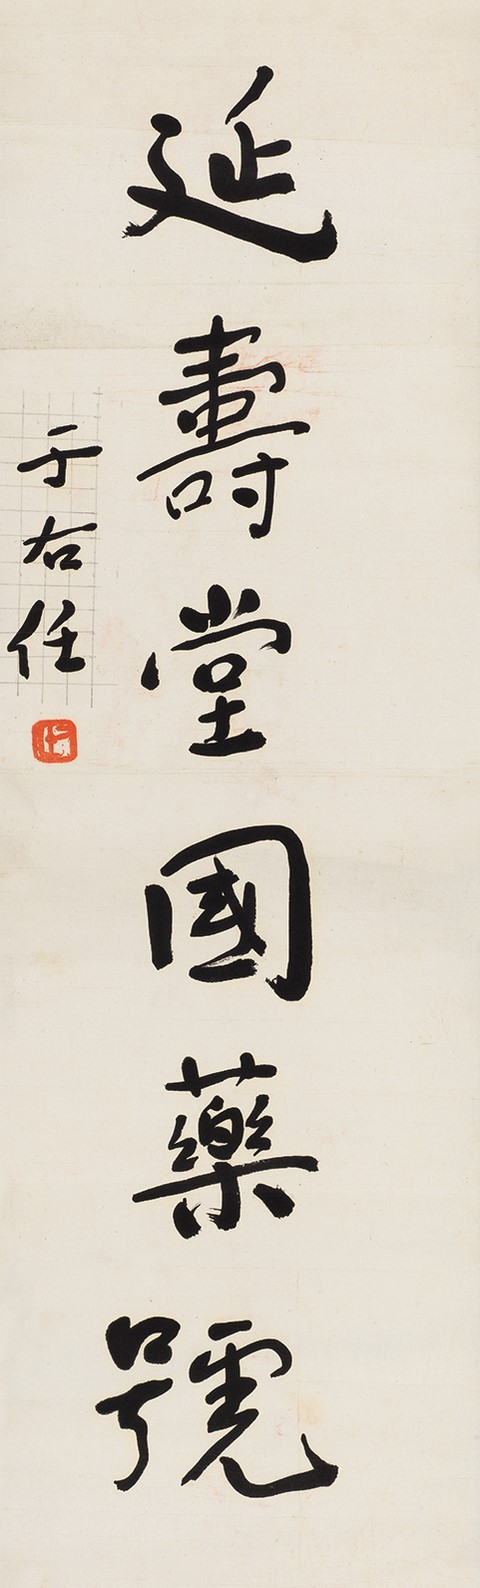 延壽堂國藥號
于右任